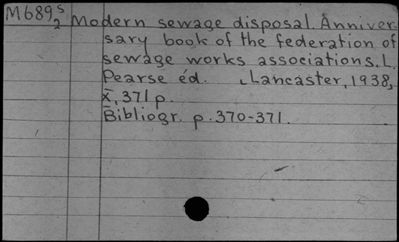 M689s2 Modern sewage disposal. Anniver-
sary book of the federation of
sewage works associations. L.
Pearse éd. Lancaster, 1938,
x, 371 p.
Bibliogr. p. 370-371.